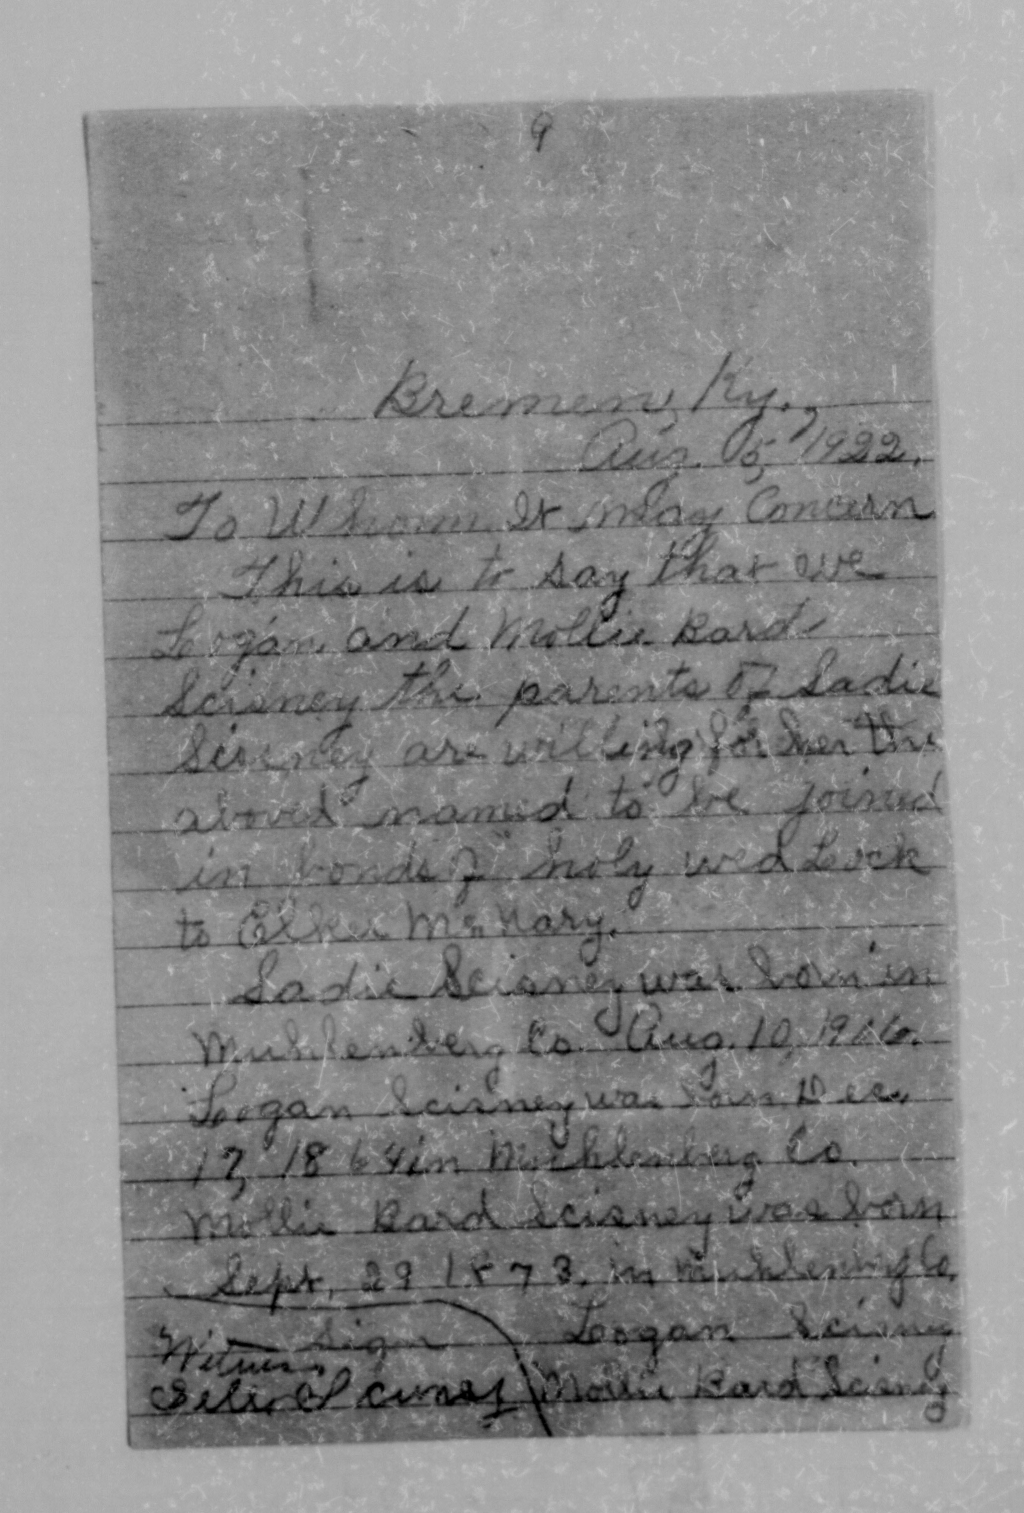 9
Bremen, Ky.,
Aug. 5, 1922.
To Whom It May Concern
This is to say that we
Logan and Mollie Bard
Scisney the parents of Sadie
Scisney are willing for her the
above named to be joined
in bonds of holy wed Lock
to Elkie McNary.
Sadie Scisney was born in
Muhlenberg Co. Aug. 10, 1906.
Logan Scisney was born Dec.
17, 1864 in Muhlenberg Co.
Mollie Bard Scisney was born
Sept. 29 1873, in Muhlenberg Co.
Sign Logan Scisney
Witness
Mollie Bard Scisney